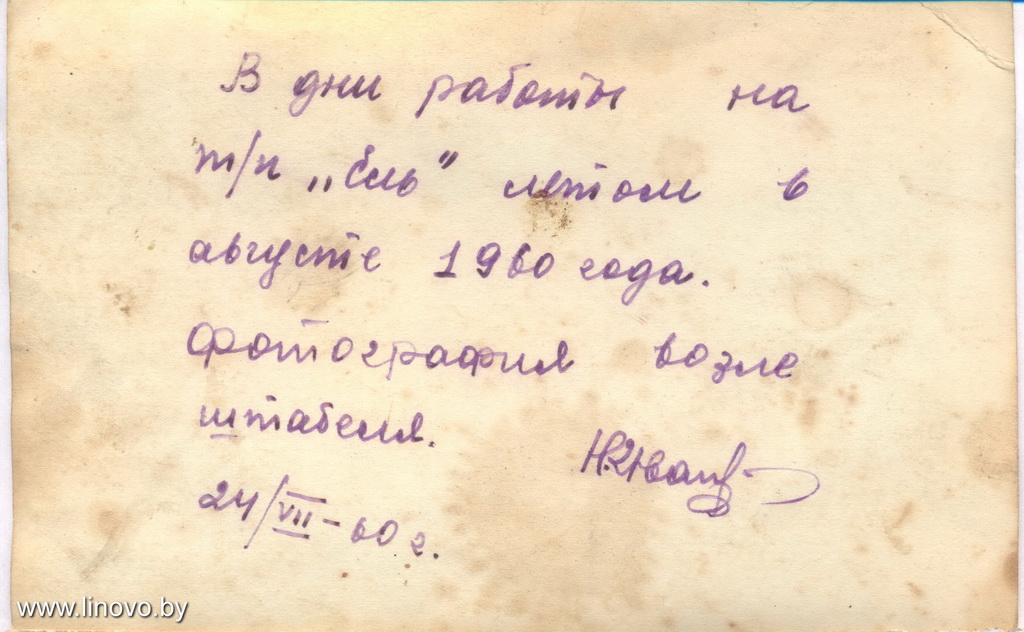 В дни работы на
т/п „Ель” летом в
августе 1960 года.
Фотография возле
штабеля.
24/VII-60 г.
www.linovo.by